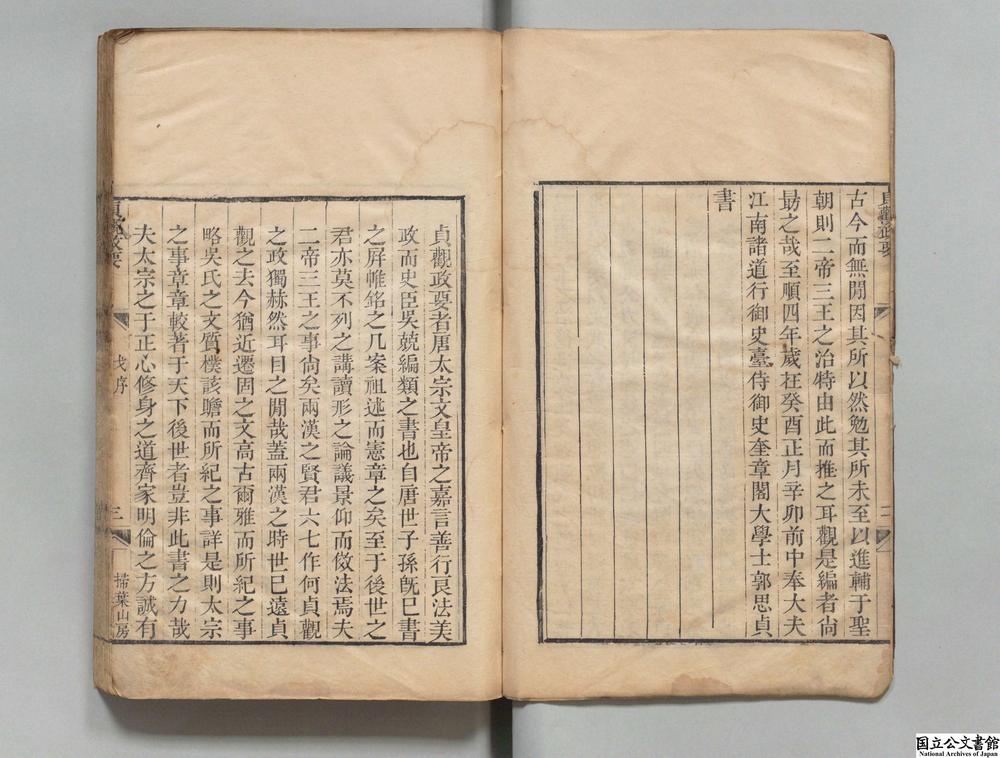 古今而無閒因其所以然勉其所未至以進輔于聖
朝則二帝三王之治特由此而推之耳觀是編者尙
朂之哉至順四年歲在癸酉正月辛卯前中奉大夫
江南諸道行御史臺侍御史奎章閣大學士郭思貞
書
二
貞觀政要者唐太宗文皇帝之嘉言善行良法美
政而史臣吳兢編類之書也自唐世子孫旣已書
之屛帷銘之几案祖述而憲章之矣至于後世之
君亦莫不列之講讀形之論議景仰而傚法焉夫
二帝三王之事尙矣兩漢之賢君六七作何貞觀
之政獨赫然耳目之閒哉蓋兩漢之時世已遠貞
觀之去今猶近遷固之文高古爾雅而所紀之事
略吳氏之文質樸該贍而所紀之事詳是則太宗
之事章章較著于天下後世者豈非此書之力哉
夫太宗之于正心修身之道齊家明倫之方誠有
戈序
三
掃葉山房
国立公文書館
National Archives of Japan